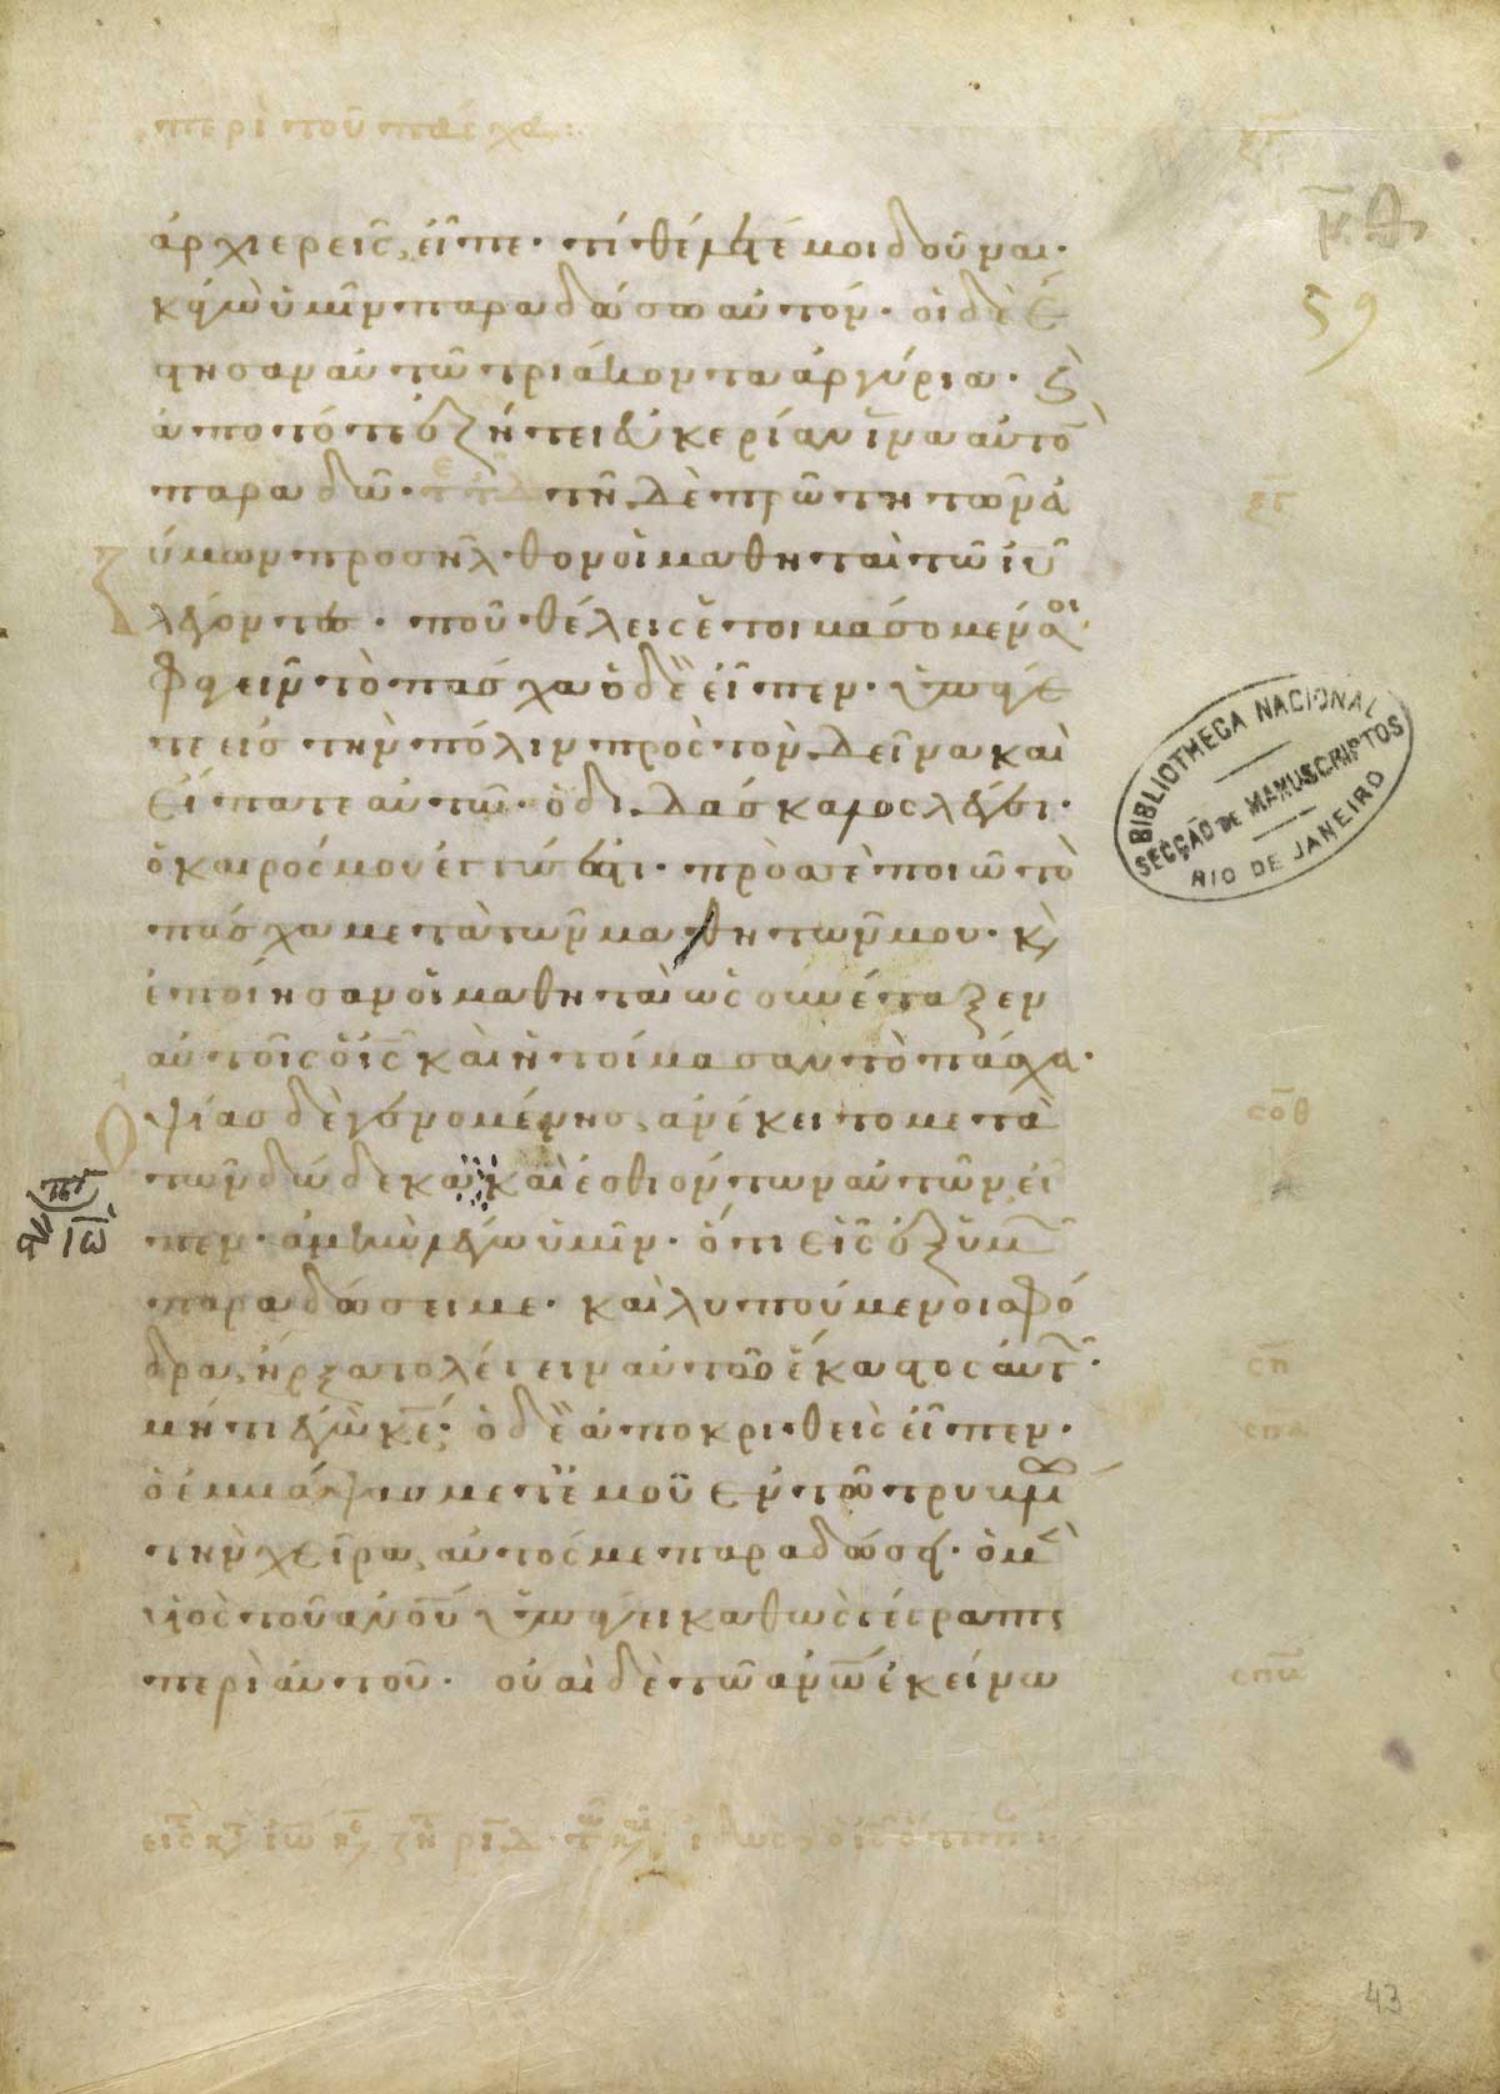 περὶ τοῦ πάσχα:
μ̅θ
59
ἀρχιερεῖς, εἶπε· τί θέλετέ μοι δοῦναι·
κἀγὼ ὑμῖν παραδώσω αὐτόν· οἱ δὲ ἔ
στησαν αὐτῶ τριάκοντα ἀργύρια· ϛ̀
ἀπο τότε ἐζήτει εὐκερίαν ἵνα αὐτὸ
παραδῶ· τῆ δὲ πρώτη τῶν ἀ
ζύμων προσῆλθον οἱ μαθηταὶ τῶ ἰυ̅
λέγοντες· ποῦ θέλεις ἑτοιμάσομέν σοι
φαγεῖν τὸ πάσχα ὁ δὲ εἶπεν· ὑπάγε
τε εἰς τὴν πόλιν πρὸς τὸν δεῖνα καὶ
εἴπατε αὐτῶ· ὁ διδάσκαλος λέγει·
ὁ καιρός μου ἐγγύς ἐστι· πρὸς σὲ ποιῶ τὸ
πάσχα μετὰ τῶν μαθητῶν μου· κ̀
ἐποίησαν οἱ μαθηταὶ ὡς συνέταξεν
αὐτοῖς ὁ ι̅ς̅ καὶ ἡτοίμασαν τὸ πάσχα·
Ὀψίας δὲ γενομένης, ἀνέκειτο μετὰ
τῶν δώδεκα· καὶ ἐσθιόντων αὐτῶν εἶ
πεν· ἀμὴν λέγω ὑμῖν· ὅτι εἷς ἐξ ὑμῶν
παραδώσει με· καὶ λυπούμενοι σφό
δρα, ἤρξατο λέγειν αὐτῶ ἕκαστος αὐτῶν·
μήτι ἐγὼ κ̅ε̅; ὁ δὲ ἀποκριθεὶς εἶπεν·
ὁ ἐμβάψας μετ' ἐμοῦ ἐν τῶ τρυβλίω
τὴν χεῖρα, αὐτός με παραδώσει· ὁ μὲν
υἱὸς τοῦ α̅ν̅ο̅υ̅ ὑπάγει καθὼς γέγραπται
περὶ αὐτοῦ· οὐαὶ δὲ τῶ α̅ν̅ω̅ ἐκείνω
σ̅ο̅θ
σ̅π
BIBLIOTHECA NACIONAL
SECÇÃO DE MANUSCRIPTOS
RIO DE JANEIRO
43